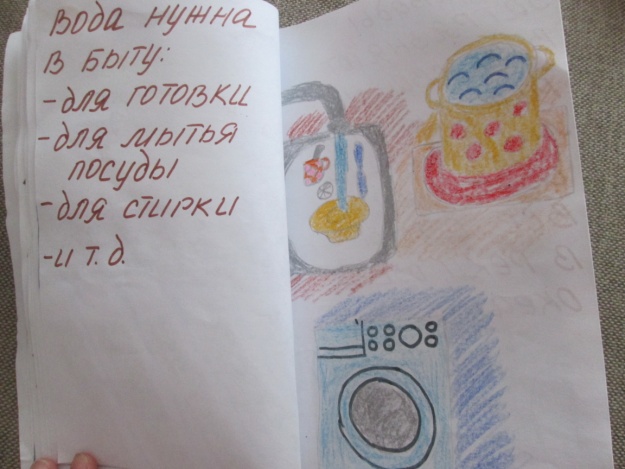 Вода нужна
в быту:
-для готовки
-для мытья
посуды
-для стирки
-и т.д.